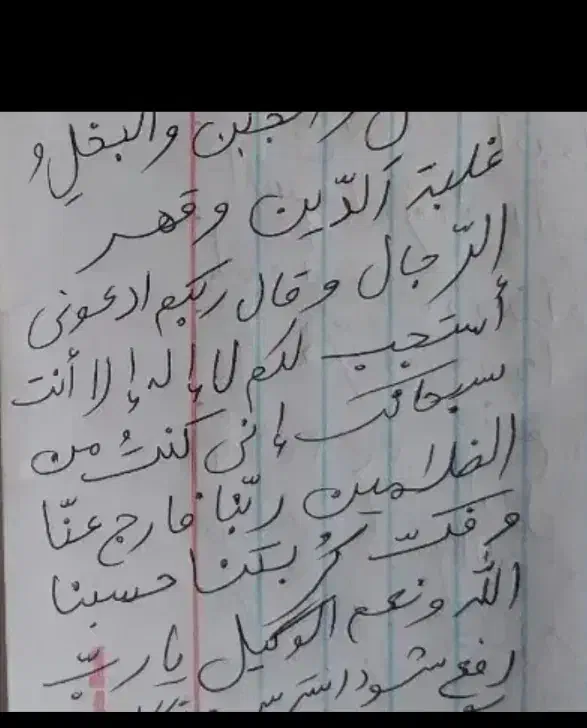 والجبن والبخلِ و
غلبة الدّين وقهر
الرّجال وقال ربكم ادعوني
أستجب لكم لا إله إلا أنت
سبحانك إني كنتُ من
الظلامين ربّنا فارج عنّا
وفكّ كُربتنا حسبنا
الله ونعم الوكيل يا ربّ